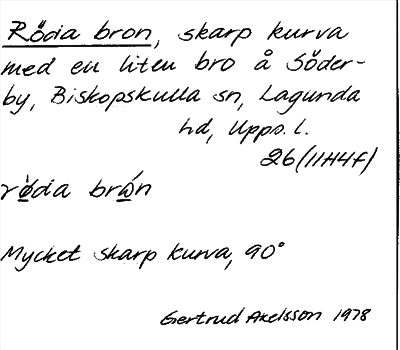 Röda bron, skarp kurva
med en liten bro å Söder-
by, Biskopskulla sn, Lagunda
hd, Upps. l.
26 (11H4f)
rö̀da brán
Mycket skarp kurva, 90°
Gertrud Axelsson 1978